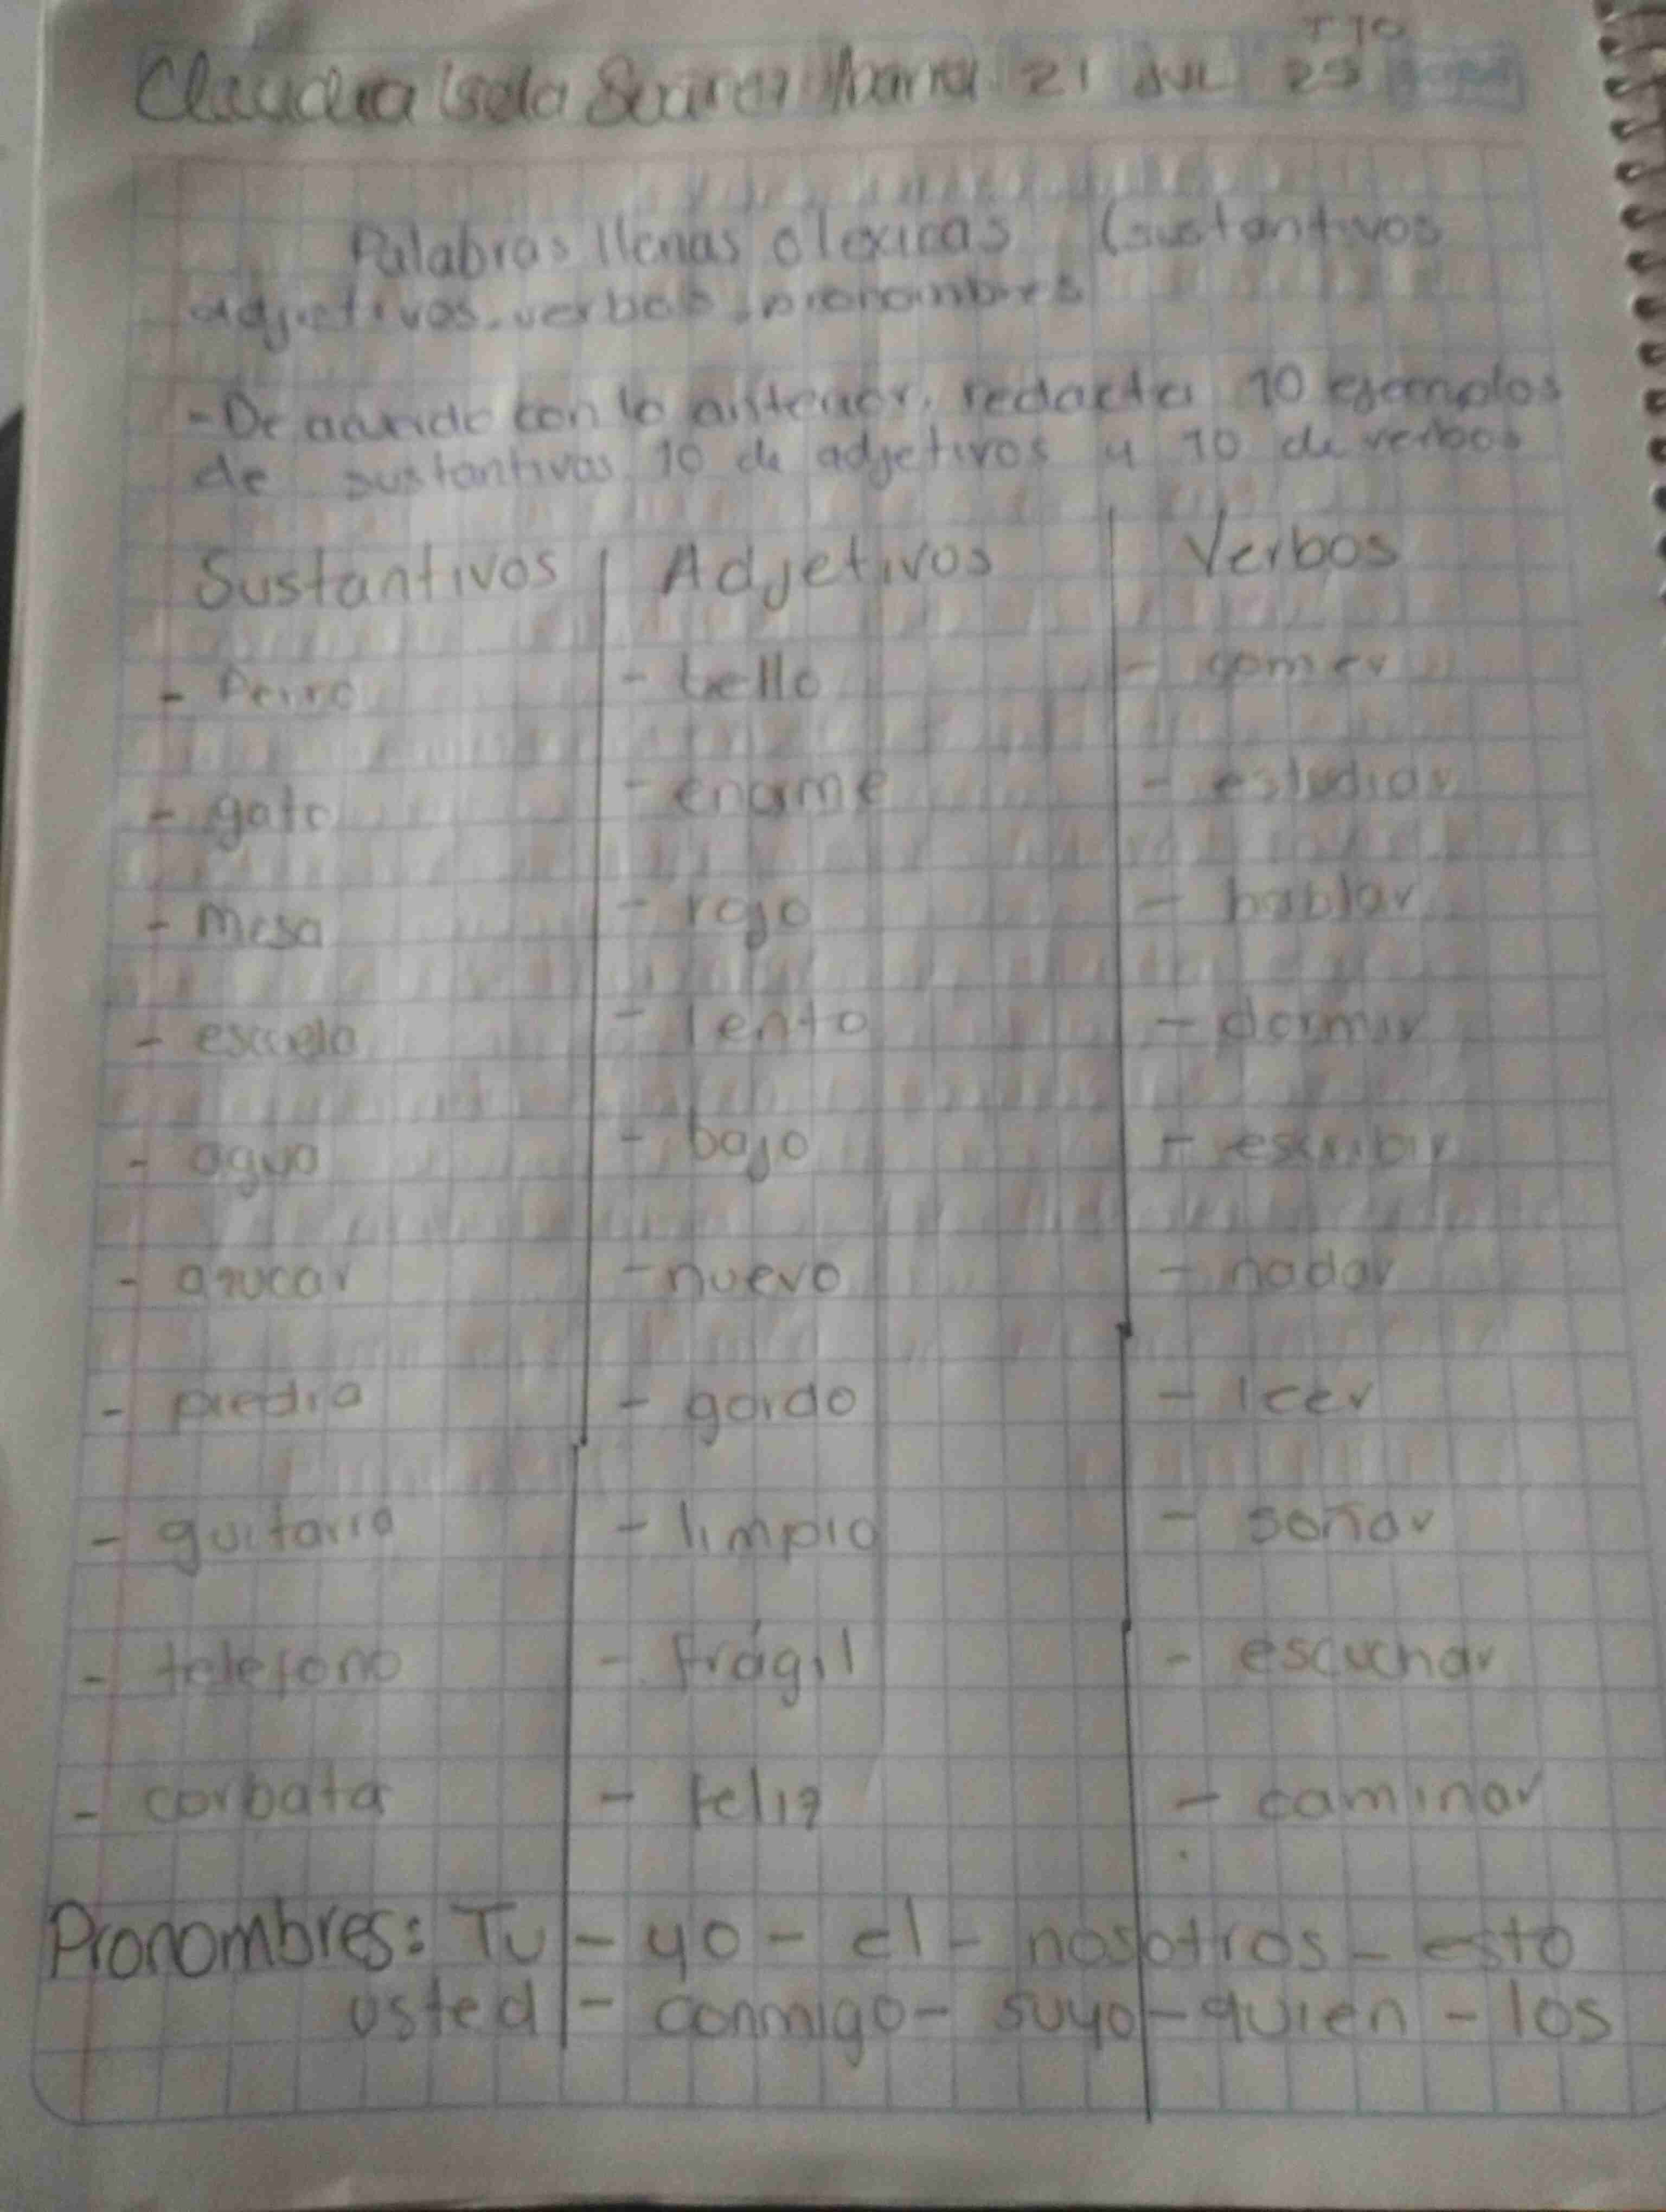 T 10
Claudia Isela Suarez Ibarra 21 JUL 25
Palabras llenas o lexicas (sustantivos
adjetivos, verbos, pronombres
- De acuerdo con lo anterior, redacta 10 ejemplos
de sustantivos 10 de adjetivos y 10 de verbos
Sustantivos Adjetivos Verbos
- Perro - bello - comer
- gato - enorme - estudiar
- Mesa - rojo - hablar
- escuela - lento - dormir
- agua - bajo - escribir
- azucar - nuevo - nadar
- piedra - gordo - leer
- guitarra - limpio - soñar
- telefono - frágil - escuchar
- corbata - feliz - caminar
Pronombres: Tu - yo - el - nosotros - esto
usted - conmigo - suyo - quien - los